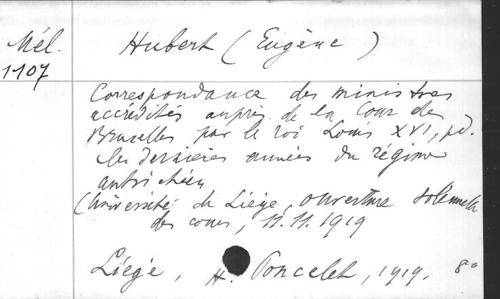 Mél.
1107
Hubert (Eugène)
Correspondance des ministres
accrédités auprès de la Cour de
Bruxelles par le roi Louis XVI, pd.
les dernières années du régime
autrichien
(Université de Liège, ouverture solennelle
des cours, 11.11.1919
Liége, H. Poncelet, 1919. 8°